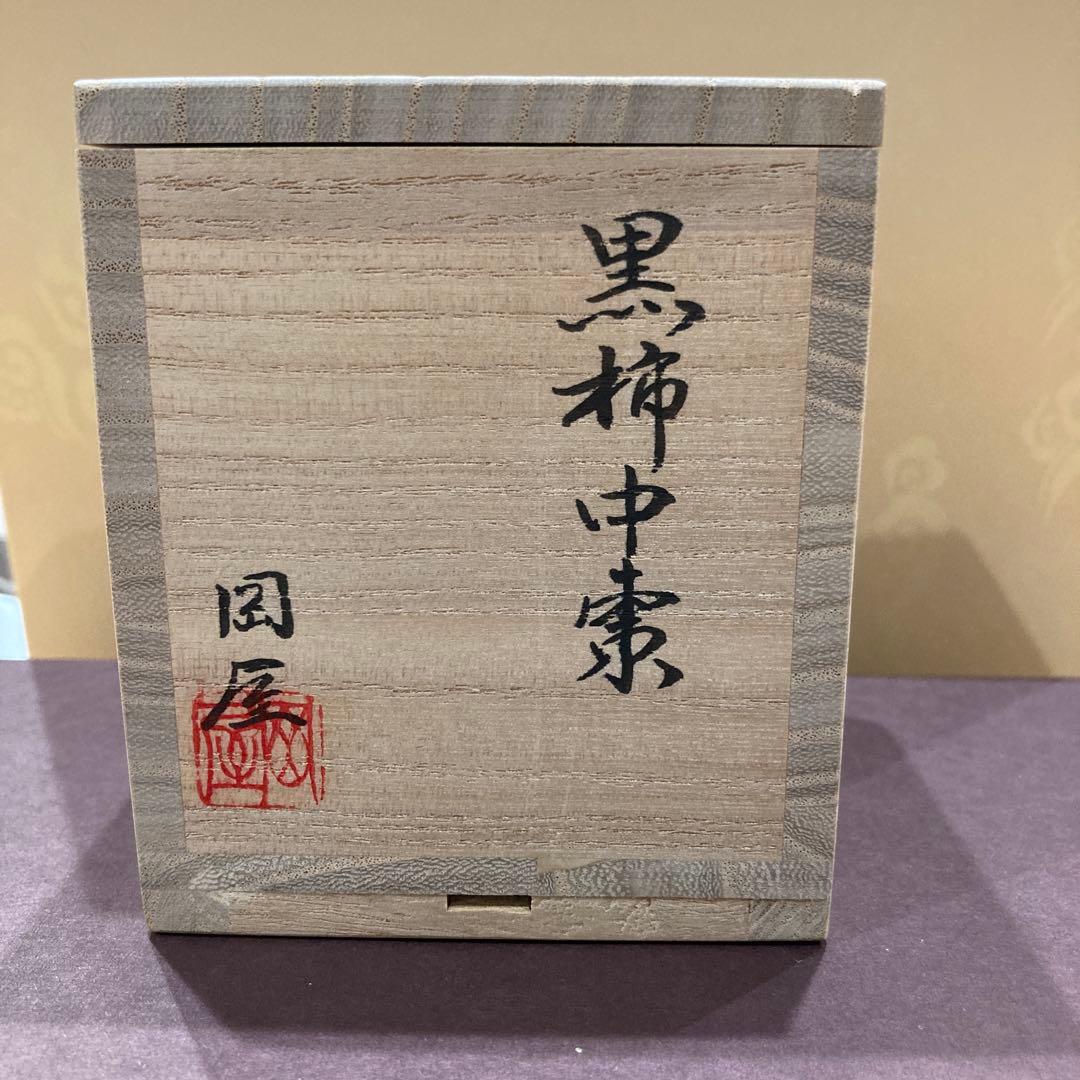 黒柿中棗
岡屋